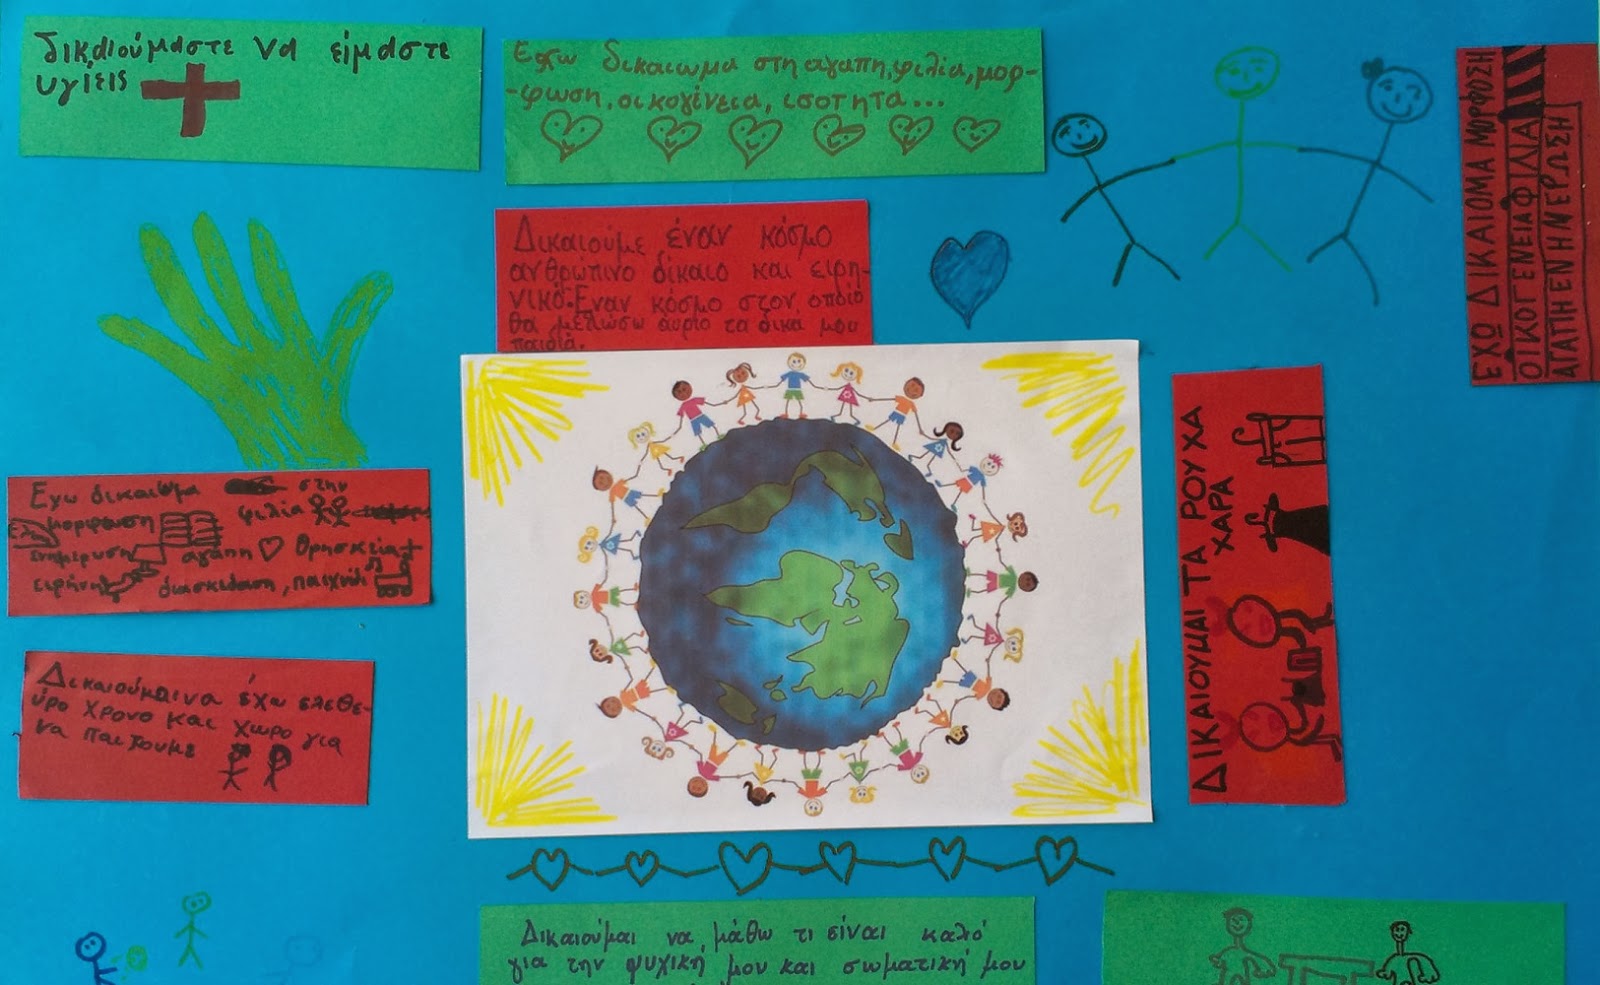 δικαιούμαστε να είμαστε
υγίεις
Εχω δικαιωμα στη αγαπη, φιλία, μορ-
-φωση, οικογένεια, ισοτητα...
Δικαιούμε έναν κόσμο
ανθρώπινο δίκαιο και ειρη-
νικό. Εναν κόσμο στον οποίο
θα μεγλώσω αυριο τα δικά μου
παιδιά.
ΕΧΩ ΔΙΚΑΙΟΜΑ ΜΟΡΦΩΣΗ
ΟΙΚΟΓΕΝΕΙΑ ΦΙΛΙΑ
ΑΓΑΠΗ ΕΝΗΜΕΡΩΣΗ
Εχω δικαιωμα στην
μορφωση φιλία
ενημερωση αγάπη θρησκεία
ειρήνη διασκεδαση, παιχνίδι
ΔΙΚΑΙΟΥΜΑΙ ΤΑ ΡΟΥΧΑ
ΧΑΡΑ
Δικαιούμαι να έχω ελεθε-
ύρο χρονο και χωρο για
να παιξουμε
Δικαιούμαι να μάθω τι είναι καλό
για την ψυχική μου και σωματική μου